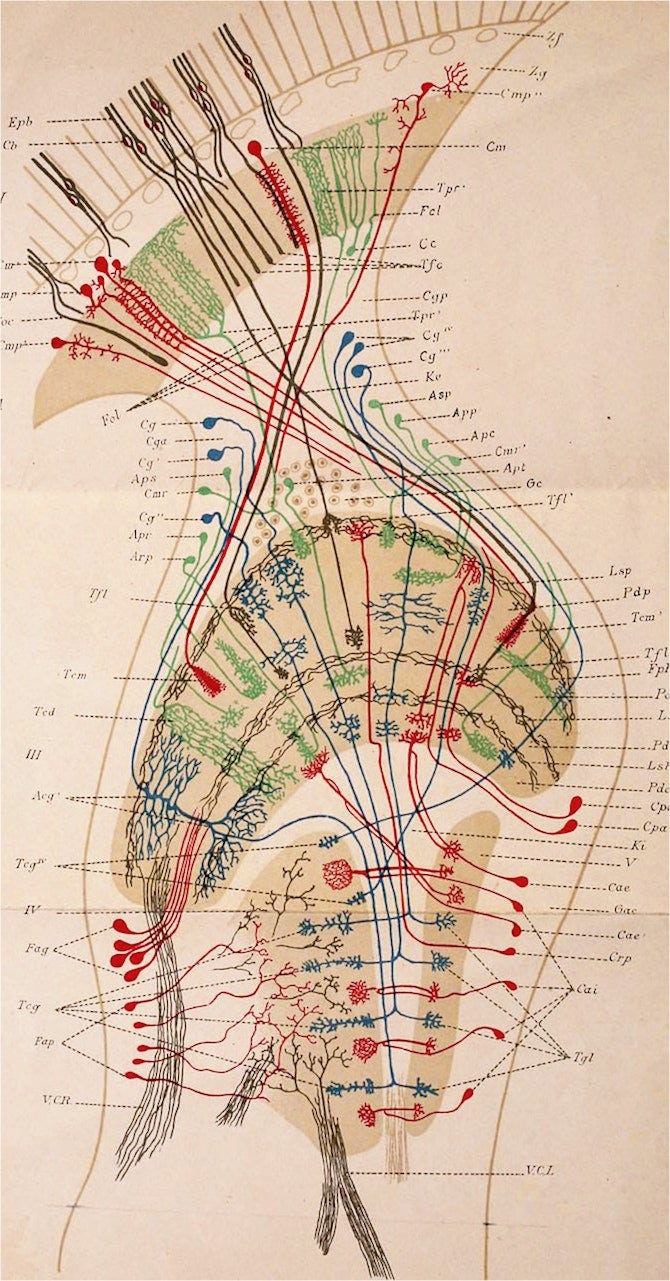 Zf
Zg
Cmp''
Epb
Cb
Cm
Tpr'
Fcl
Cc
Tfc
Cgp
Tpr'
Cg'''
Ke
Asp
App
Apc
Cmr'
Apt
Gc
Tfl'
Fcl
Cg
Cga
Cg'
Aps
Cmr
Cg''
Apr
Arp
Tfl
Lsp
Pdp
Tcm'
Tcm
Tcd
III
Acg'
Ki
V
Cae
Gac
Cae'
Crp
Cai
Tgl
IV
Fag
Tcg
Fap
V.CR.
V.C.L